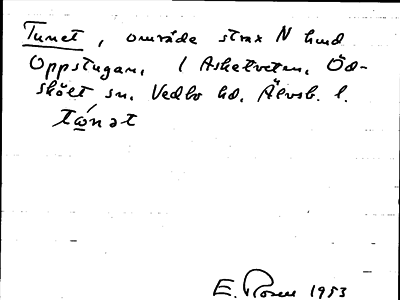 Tunet, område strax N
Oppstugan, i Asketveten, Öd-
skölt sn, Vedbo hd, Älvsb. l.
E. Rosen 1953